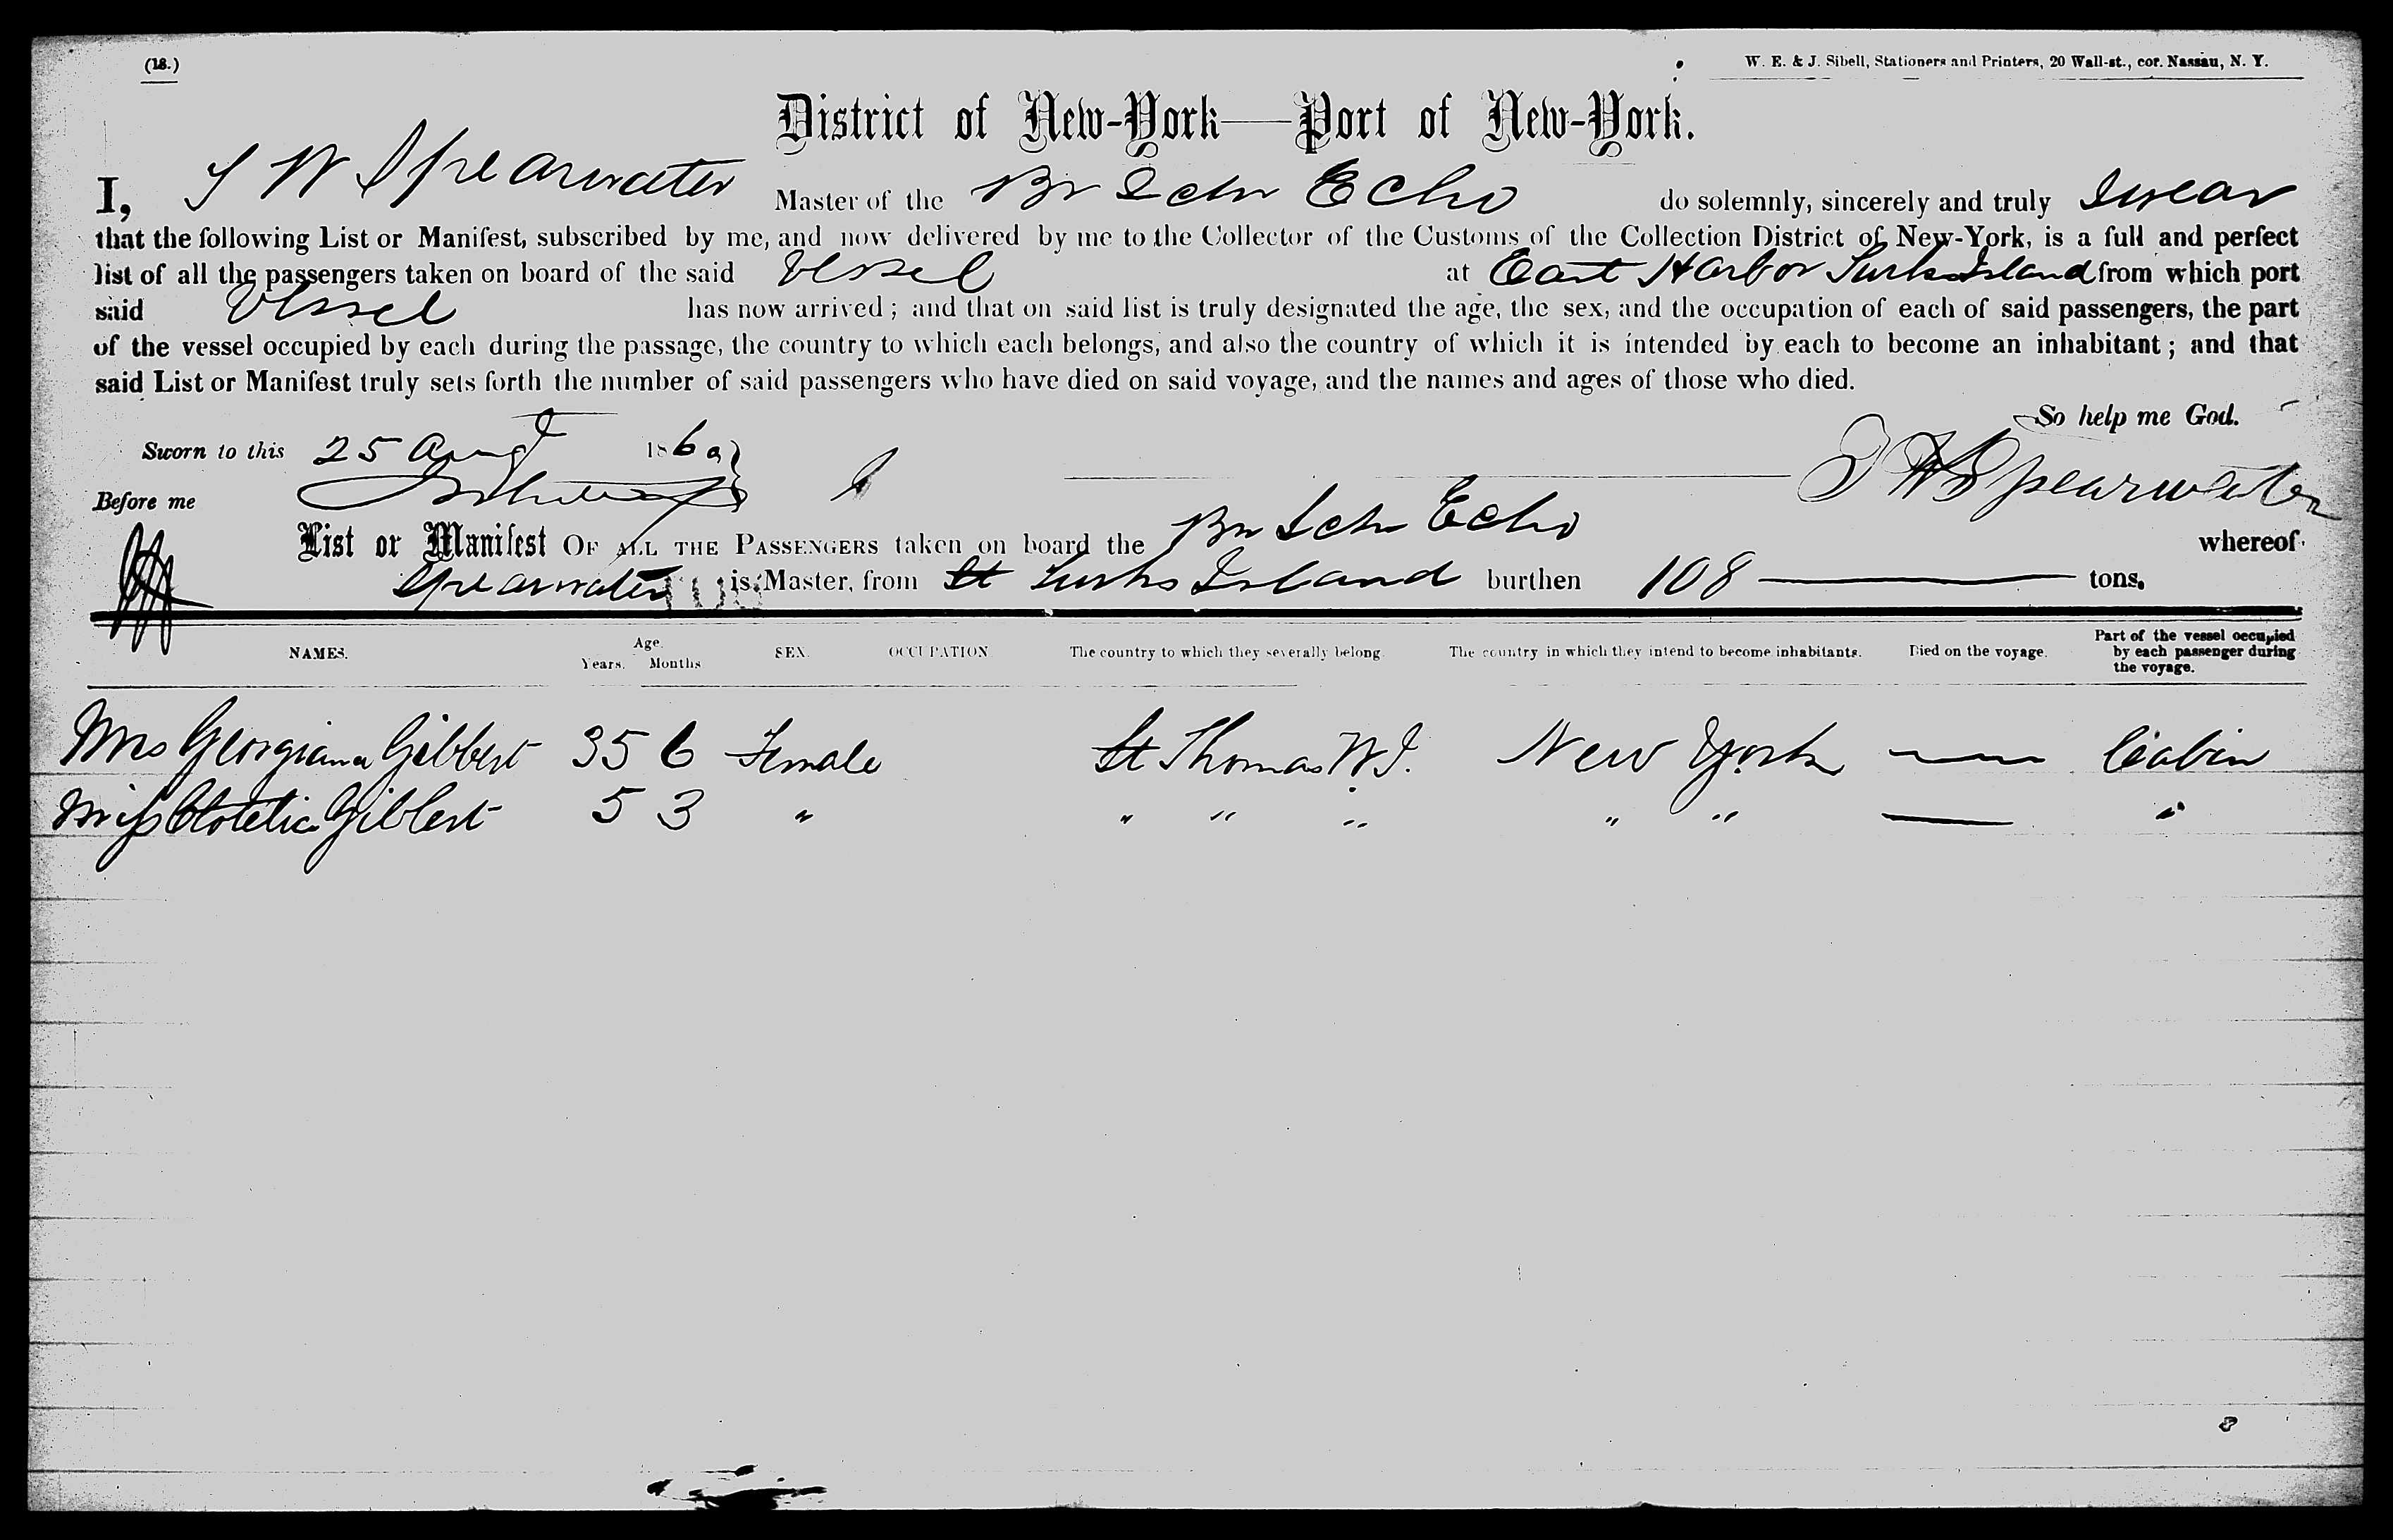 (18.)
W. E. & J. Sibell, Stationers and Printers, 20 Wall-st., cor. Nassau, N. Y.
District of New-York—Port of New-York.
I, W Spearwater Master of the Br Schr Echo do solemnly, sincerely and truly Swear
that the following List or Manifest, subscribed by me, and now delivered by me to the Collector of the Customs of the Collection District of New-York, is a full and perfect
list of all the passengers taken on board of the said Vessel at East Harbor Turks Island from which port
said Vessel has now arrived; and that on said list is truly designated the age, the sex, and the occupation of each of said passengers, the part
of the vessel occupied by each during the passage, the country to which each belongs, and also the country of which it is intended by each to become an inhabitant; and that
said List or Manifest truly sets forth the number of said passengers who have died on said voyage, and the names and ages of those who died.
So help me God.
Sworn to this 25 Augt 1869
Before me
W Spearwater
List or Manifest OF ALL THE PASSENGERS taken on board the Br Schr Echo whereof
Spearwater is Master, from St Turks Island burthen 108 — tons.
NAMES. Age. Years. Months SEX. OCCUPATION The country to which they severally belong. The country in which they intend to become inhabitants. Died on the voyage. Part of the vessel occupied by each passenger during the voyage.
Mrs Georgiana Gibbert 35 6 Female St Thomas W.I. New York — Cabin
Miss Gibbert 5 3 " " " " " " — "
8